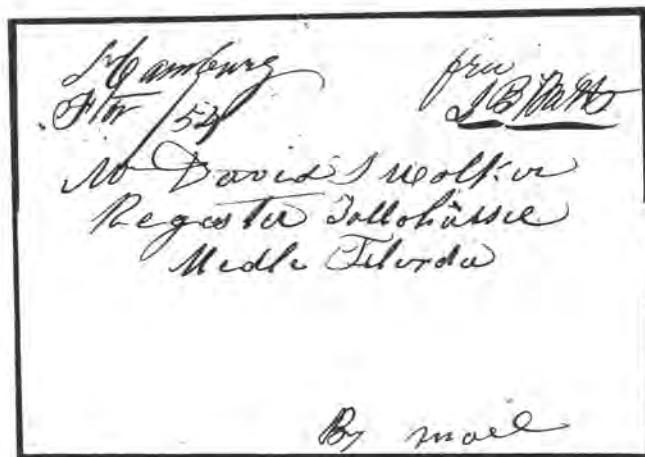 Hamburg
Flor /54
free
J B
Mr David S Walker
Regester Tallohassee
Medle Florda
By mail